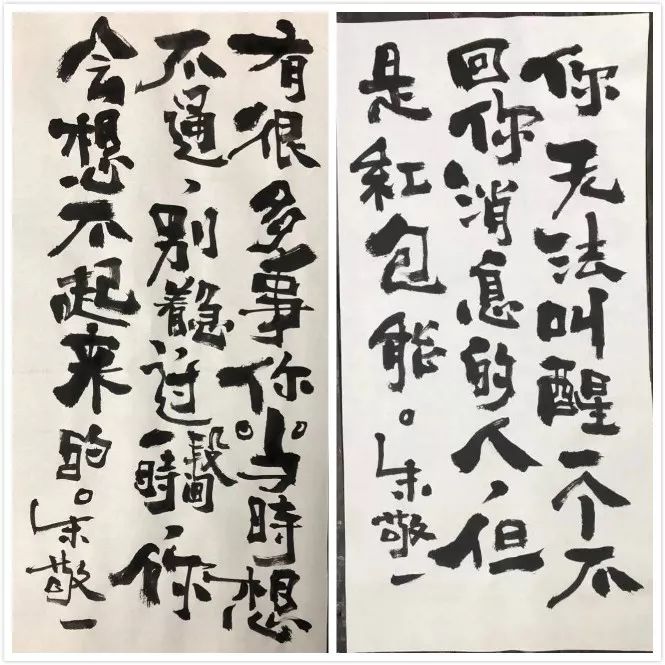 有很多事你当時想
不通，别着急，过一段時間，你
会想不起来的。朱敬一
你无法叫醒一个不
回你消息的人，但
是紅包能。朱敬一